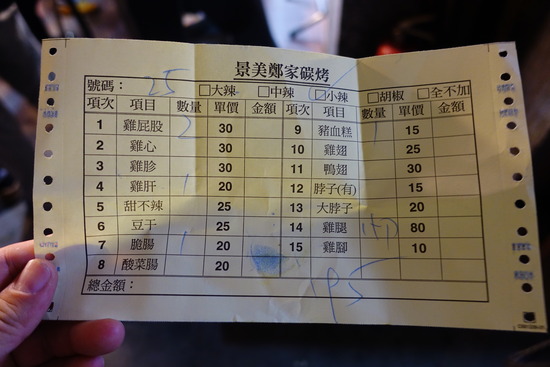 景美鄭家碳烤
號碼： 25 □大辣 □中辣 ☑小辣 □胡椒 □全不加
項次 項目 數量 單價 金額 項次 項目 數量 單價 金額
1 雞屁股 2 30 9 豬血糕 1 15
2 雞心 30 10 雞翅 25
3 雞胗 30 11 鴨翅 30
4 雞肝 1 20 12 脖子(有) 15
5 甜不辣 25 13 大脖子 20
6 豆干 25 14 雞腿 80
7 脆腸 1 20 15 雞腳 10
8 酸菜腸 20
總金額：